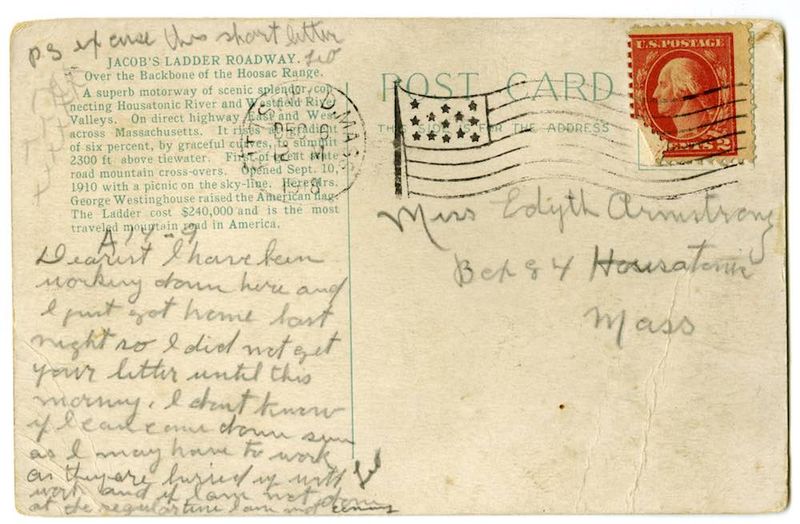 P S excuse this short letter
Leo
JACOB'S LADDER ROADWAY.
Over the Backbone of the Hoosac Range.
A superb motorway of scenic splendor con-
necting Housatonic River and Westfield River
Valleys. On direct highway East and West
across Massachusetts. It rises at gradient
of six percent, by graceful curves, its summit
2300 ft above tiewater. First of great state
road mountain cross-overs. Opened Sept. 10,
1910 with a picnic on the sky-line. Here Mrs.
George Westinghouse raised the American flag
The Ladder cost $240,000 and is the most
traveled mountain road in America.
A 14-9
Dearest I have been
working down here and
I just got home last
night so I did not get
your letter until this
morning. I dont know
if I can come down sun
as I may have to work
as they are buried up with
work and if I am not down
at the regular time I am not coming
POST CARD
THIS SIDE IS FOR THE ADDRESS
U.S. POSTAGE
CENTS 2
MASS
DEC
1918
Miss Edyth Armstrong
Box 84 Housatonic
Mass